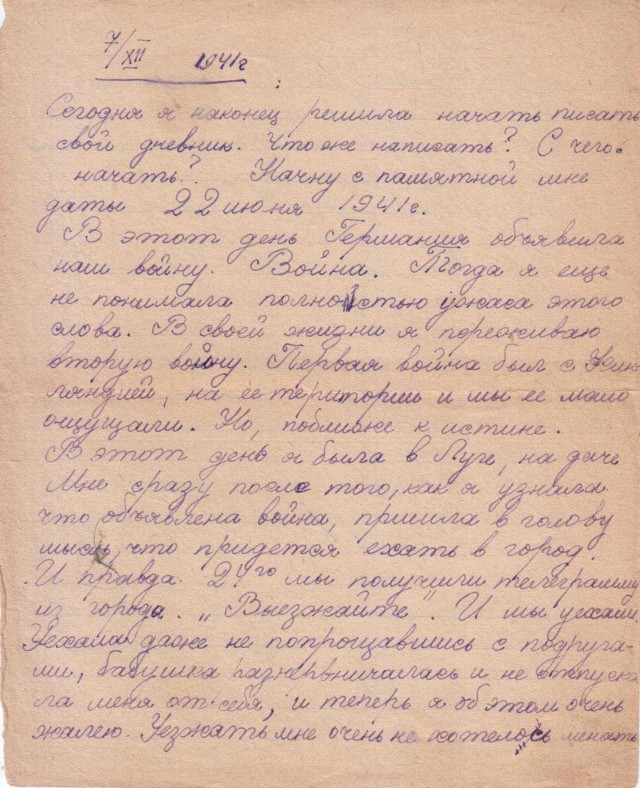 7/XII 1941г
Сегодня я наконец решила начать писать
свой дневник. Что же написать? С чего
начать? Начну с памятной мне
даты 22 июня 1941г.
В этот день Германия объявила
нам войну. Война. Тогда я еще
не понимала полностью ужаса этого
слова. В своей жизни я переживаю
вторую войну. Первая война был с Фин-
ляндией, на ее територии и мы ее мало
ощущали. Но, поближе к истине.
В этот день я была в Луге, на даче
Мне сразу после того, как я узнала
что объявлена война, пришла в голову
мысль, что придется ехать в город.
И правда. 24го мы получили телеграмму
из города. „Выезжайте". И мы уехали.
Уехали даже не попрощавшись с подруга-
ми, бабушка разнервничалась и не отпуска-
ла меня от себя, и теперь я об этом очень
жалею. Уезжать мне очень не хотелось менять